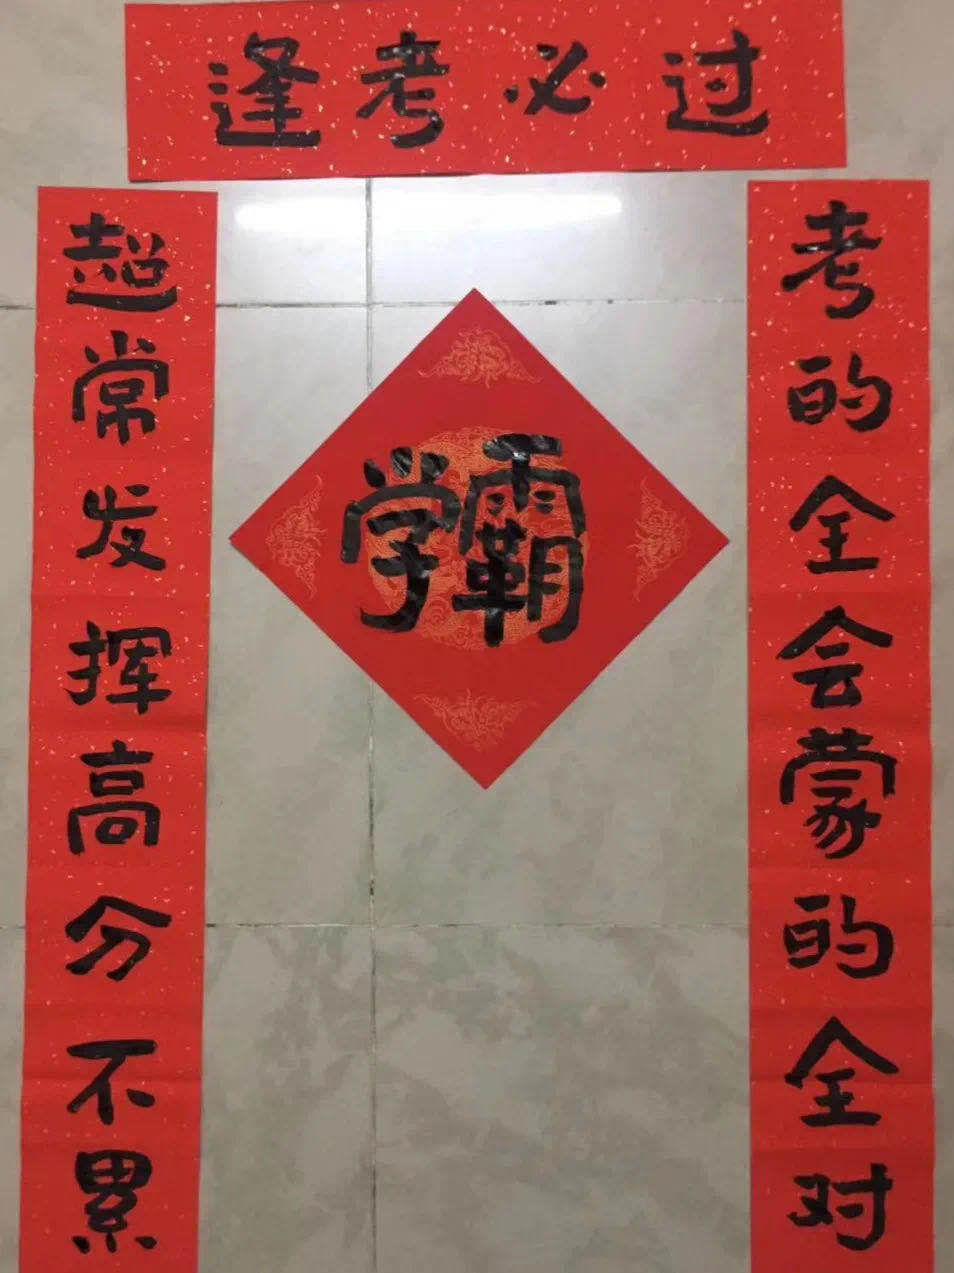 逢考必过
考的全会蒙的全对
超常发挥高分不累
学霸